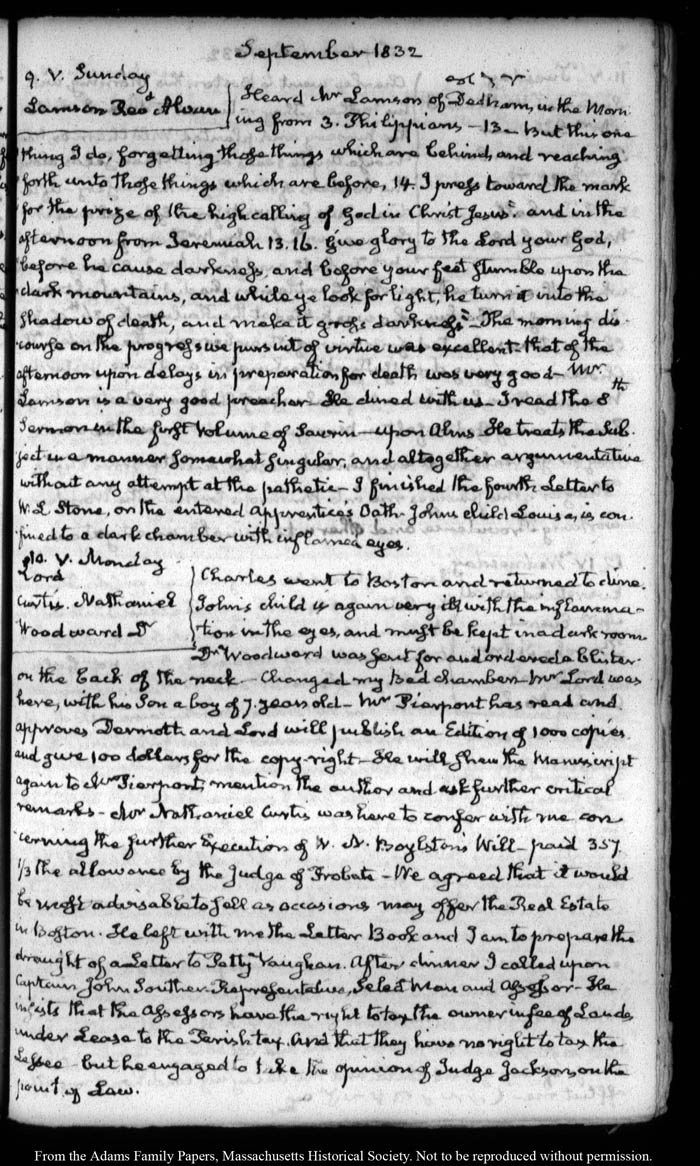 September 1832
9. V. Sunday
Lamson Revd Alvan
Heard Mr Lamson of Dedham, in the Morn-
ing from 3. Philippians – 13 – But this one
thing I do, forgetting those things which are behind, and reaching
forth unto those things which are before, 14. I press toward the mark
for the prize of the high calling of God in Christ Jesus: and in the
afternoon from Jeremiah 13.16. Give glory to the Lord your God,
before he cause darkness, and before your feet stumble upon the
dark mountains, and while ye look for light, he turn it into the
shadow of death, and make it gross darkness – The morning dis-
course on the progressive pursuit of virtue was excellent. that of the
afternoon upon delays in preparation for death was very good – Mr
Lamson is a very good preacher – He dined with us – I read the 8th
Sermon in the first Volume of Saurin – upon Alms – He treats the Sub-
ject in a manner somewhat singular, and altogether argumentative
without any attempt at the pathetic – I finished the fourth Letter to
W. L Stone, on the entered Apprentice's Oath. John's child Louisa, is con-
fined to a dark chamber with inflamed eyes.
10. V. Monday
Lord
Curtis. Nathaniel
Woodward Dr
Charles went to Boston and returned to dine.
John's child is again very ill with the inflamma-
tion in the eyes, and must be kept in a dark room
Dr Woodward was sent for and ordered a blister
on the back of the neck – Changed my Bed chamber – Mr Lord was
here, with his Son a boy of 7. years old – Mr Pierpont has read and
approves Dermott and Lord will publish an Edition of 1000 copies
and give 100 dollars for the copy-right – He will shew the Manuscript
again to Mr Pierpont, mention the author and ask further critical
remarks – Mr Nathaniel Curtis was here to confer with me con-
cerning the further Execution of W. N. Boylston's Will – paid 357
1/3 the allowance by the Judge of Probate – We agreed that it would
be most advisable to sell as occasions may offer the Real Estate
in Boston. He left with me the Letter Book and I am to prepare the
draught of a Letter to Petty Vaughan. After dinner I called upon
Captain John Souther. Representative, Select Man and Assessor – He
insists that the Assessors have the right to tax the owner in fee of Lands
under Lease to the Parish tax. And that they have no right to tax the
Lessee – but he engaged to take the opinion of Judge Jackson, on the
point of Law.
From the Adams Family Papers, Massachusetts Historical Society. Not to be reproduced without permission.